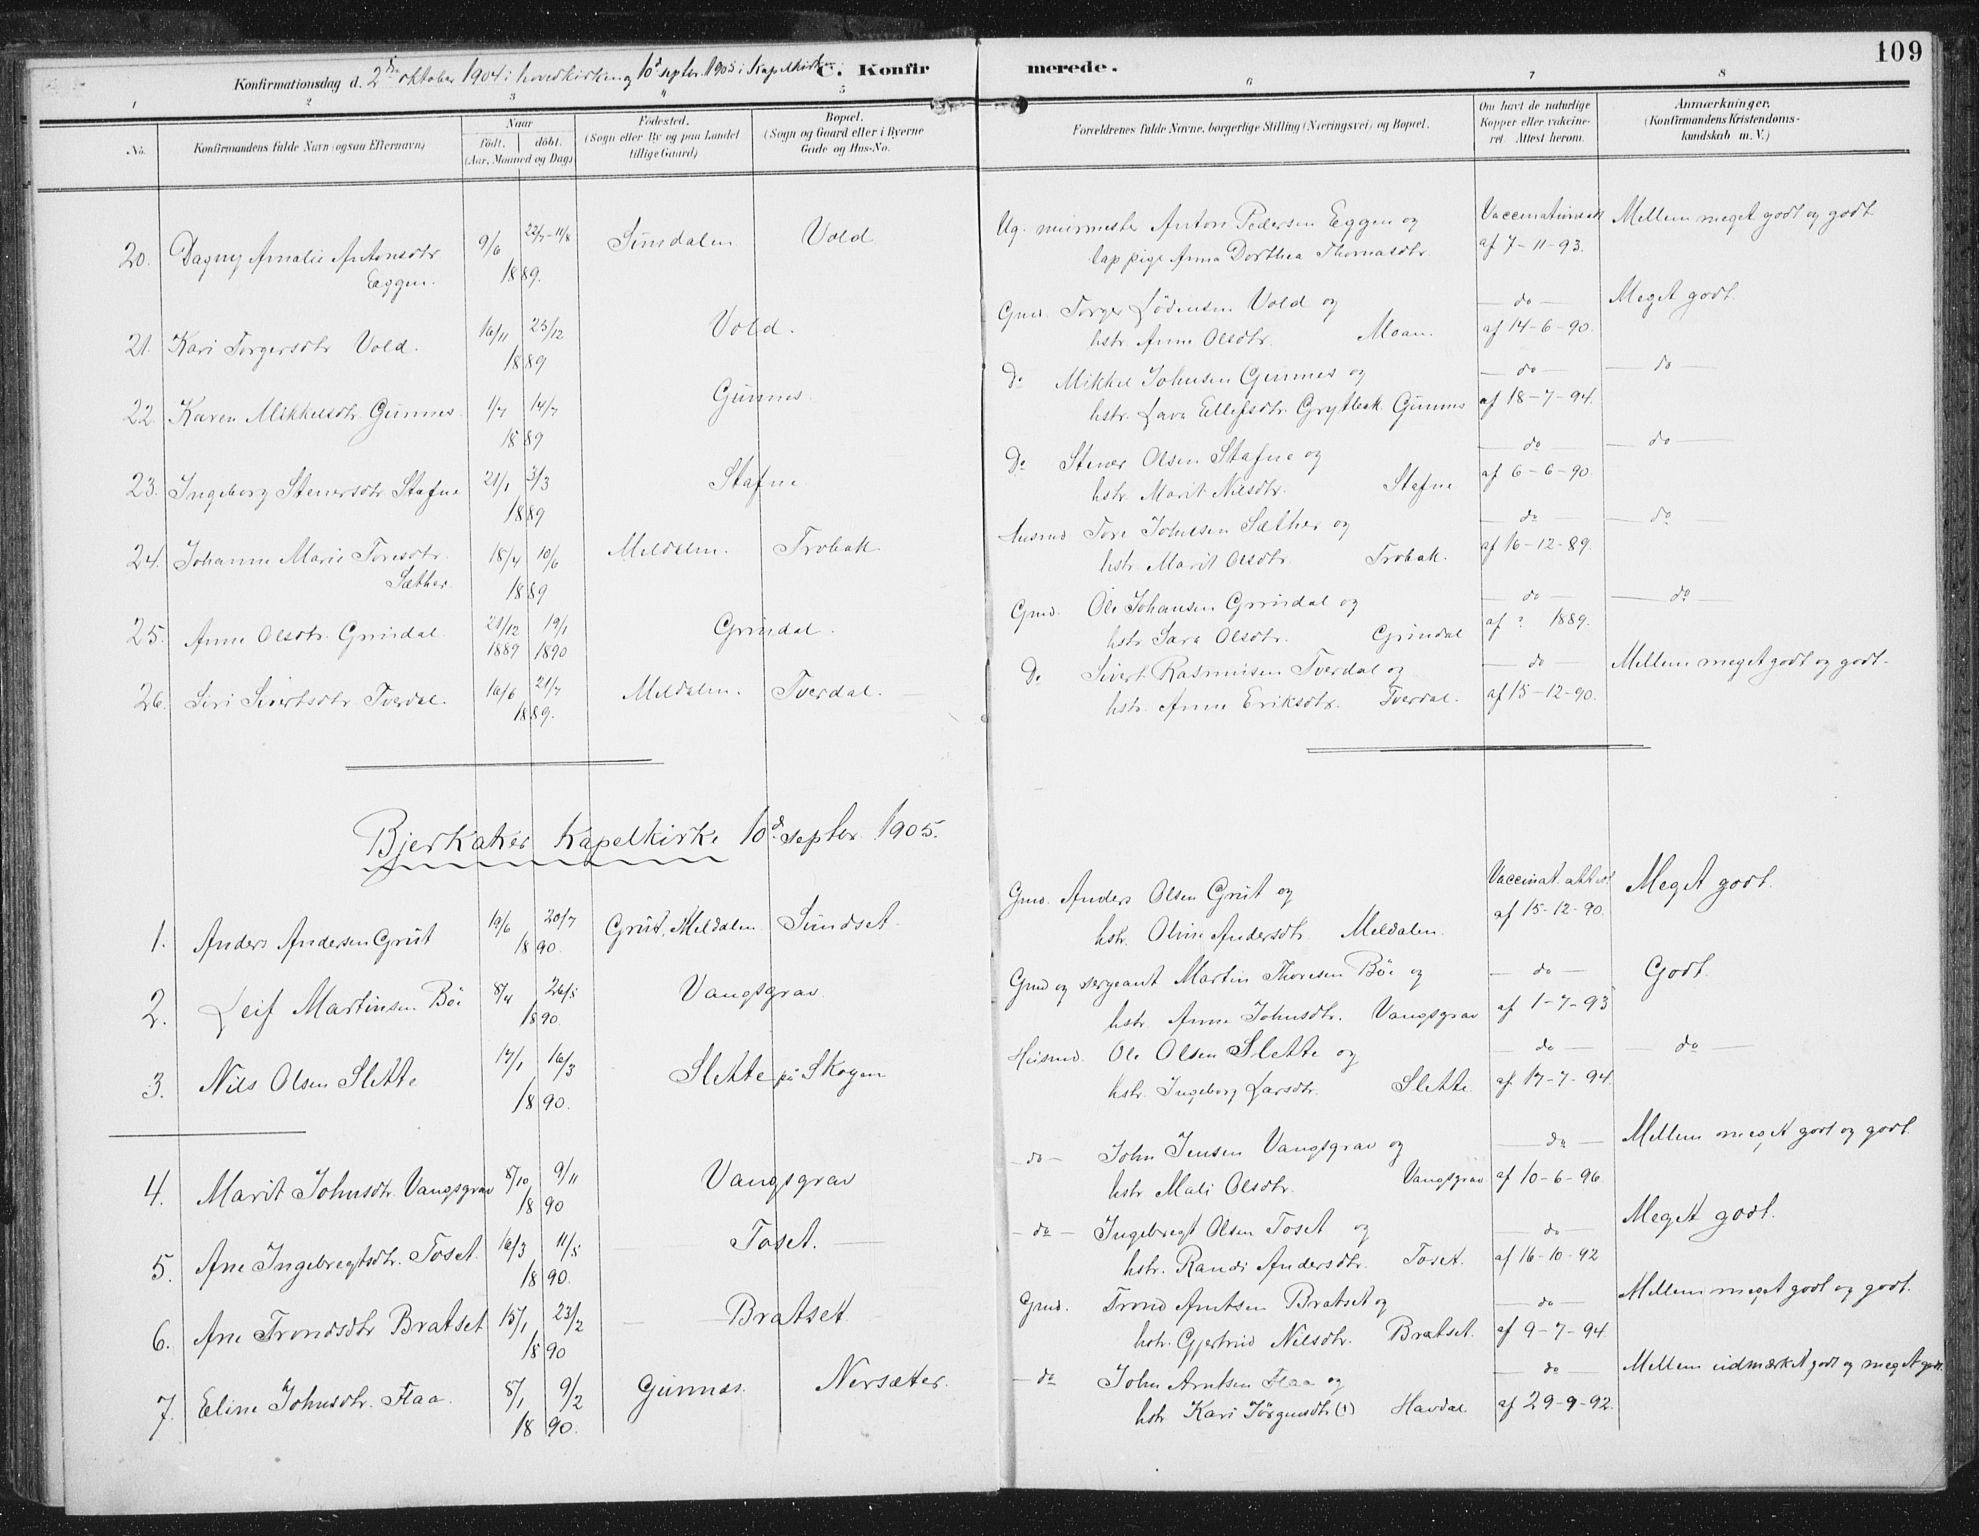 109
Konfirmationsdag d. 2den oktober 1904 i hovedkirken og 10d septbr. 1905 i Kapelkirken C. Konfirmerede.
1 2 3 4 5 6 7 8
No. Konfirmandens fulde Navn (ogsaa Efternavn)
Naar født. døbt. (Aar, Maaned og Dag)
Fødested. (Sogn eller By og paa Landet tillige Gaard)
Bopæl. (Sogn og Gaard eller i Byerne Gade og Hus-No.
Forældrenes fulde Navne, borgerlige Stilling (Næringsvei) og Bopæl.
Om havt de naturlige Kopper eller vakcineret. Attest herom.
Anmærkninger. (Konfirmandens Kristendomskundskab m. V.)
20. Dagny Amalie Antonsdtr Eggen. 9/6 22/7-11/8 1889. Vold
Ug. murmester Anton Pedersen Eggen og
lap pige Anna Dorthea Thomasdtr.
af 7-11-93. Mellem meget godt og godt
21. Kari Torgersdtr Vold. 16/11 25/12 1889 Vold.
Gmd. Torger Lødensen Vold og
hstr Anne Olsdtr. Moan.
do af 14-6-90. Meget godt.
22. Karen Mikkelsdtr. Gunnes. 1/7 14/7 1889 Gunnes.
Do Mikkel Johnsen Gunnes og
hstr. Lava Ellefsdtr. Gunnes
do af 18-7-94. do
23. Ingeborg Stenersdtr. Stafne 21/1 3/3 1889 Stafne
Do Stener Olsen Stafne og
hstr Marit Nilsdtr. Stafne
do af 6-6-90. do
24. Johanne Marie Toresdtr. Sæther. 18/4 10/6 1889 Meldalen. Trobak
Husmd Tore Johnsen Sæther og
hstr. Marit Olsdtr. Trobak.
do af 16-12-89. do
25. Anne Olsdtr. Grindal. 21/12 1889 19/1 1890 Grindal.
Gmd. Ole Johansen Grindal og
hstr Sara Olsdtr. Grindal
do af ? 1889. do
26. Siri Sivertsdtr Tverdal. 16/6 21/7 1889. Meldalen. Tverdal.
Do Sivert Rasmussen Tverdal og
hstr. Anne Eriksdtr. Tverdal.
do af 15-12-90. Mellem meget godt og godt.
Bjerkaker Kapelkirke 10d septbr. 1905.
1. Anders Andersen Grut 19/6 20/7 1890. Grut, Meldalen Sundset.
Gmd. Anders Olsen Grut og
hstr. Oline Andersdtr. Meldalen.
Vaccinat. attest af 15-12-90. Meget godt.
2. Leif Martinsen Bøe 8/4 26/5 1890. Vangsgrav.
Gmd og sergeant Martin Thoresen Bøe og
hstr. Anne Johnsdtr. Vangsgrav
do af 1-7-93 Godt.
3. Nils Olsen Slette 17/1 16/3 1890. Slette på Skogen
Husmd. Ole Olsen Slette og
hstr. Ingeborg Larsdtr. Slette.
do af 17-7-94. do
4. Marit Johnsdtr. Vangsgrav 8/10 9/11 1890 Vangsgrav
do John Jensen Vangsgrav og
hstr Mali Olsdtr. Vangsgrav
do af 10-6-96 Mellem meget godt og godt.
5. Ane Ingebregtsdtr. Toset. 16/3 11/5 1890. Toset.
do Ingebregt Olsen Toset og
hstr. Randi Andersdtr. Toset.
do af 16-10-92 Meget godt.
6. Ane Trondsdtr Bratset 15/1 23/2 1890 Bratset
Gmd. Trond Arntsen Bratset og
hstr. Gjertrud Nilsdtr. Bratset.
do af 9-7-94. Mellem meget godt og godt.
7. Eline Johnsdtr. Flaa. 8/1 9/2 1890. Gunnes. Nersæter.
do John Arntsen Flaa og
hstr Kari Jørgensdtr (†) Havdal.
do af 29-9-92. Mellem udmærket godt og meget godt.